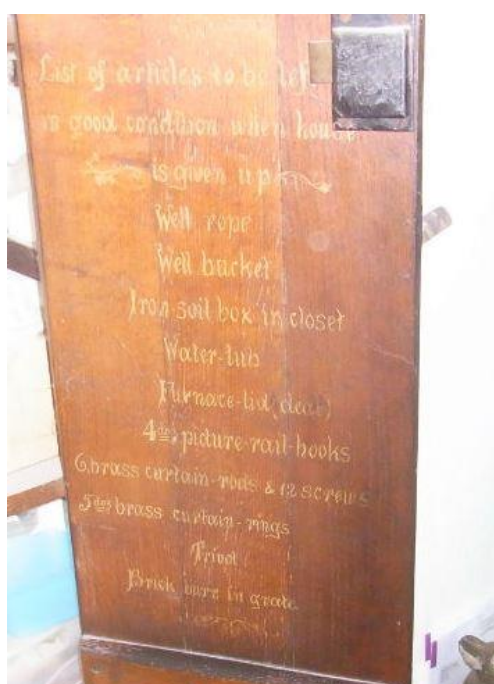 List of articles to be left
in good condition when house
is given up
Well rope
Well bucket
Iron-soil box in closet
Water-tub
Furnace-lid (deal)
4 doz picture-rail-hooks
6, brass curtain-rods & 12 screws
5 doz brass curtain-rings
Trivet
Brick burr in grate